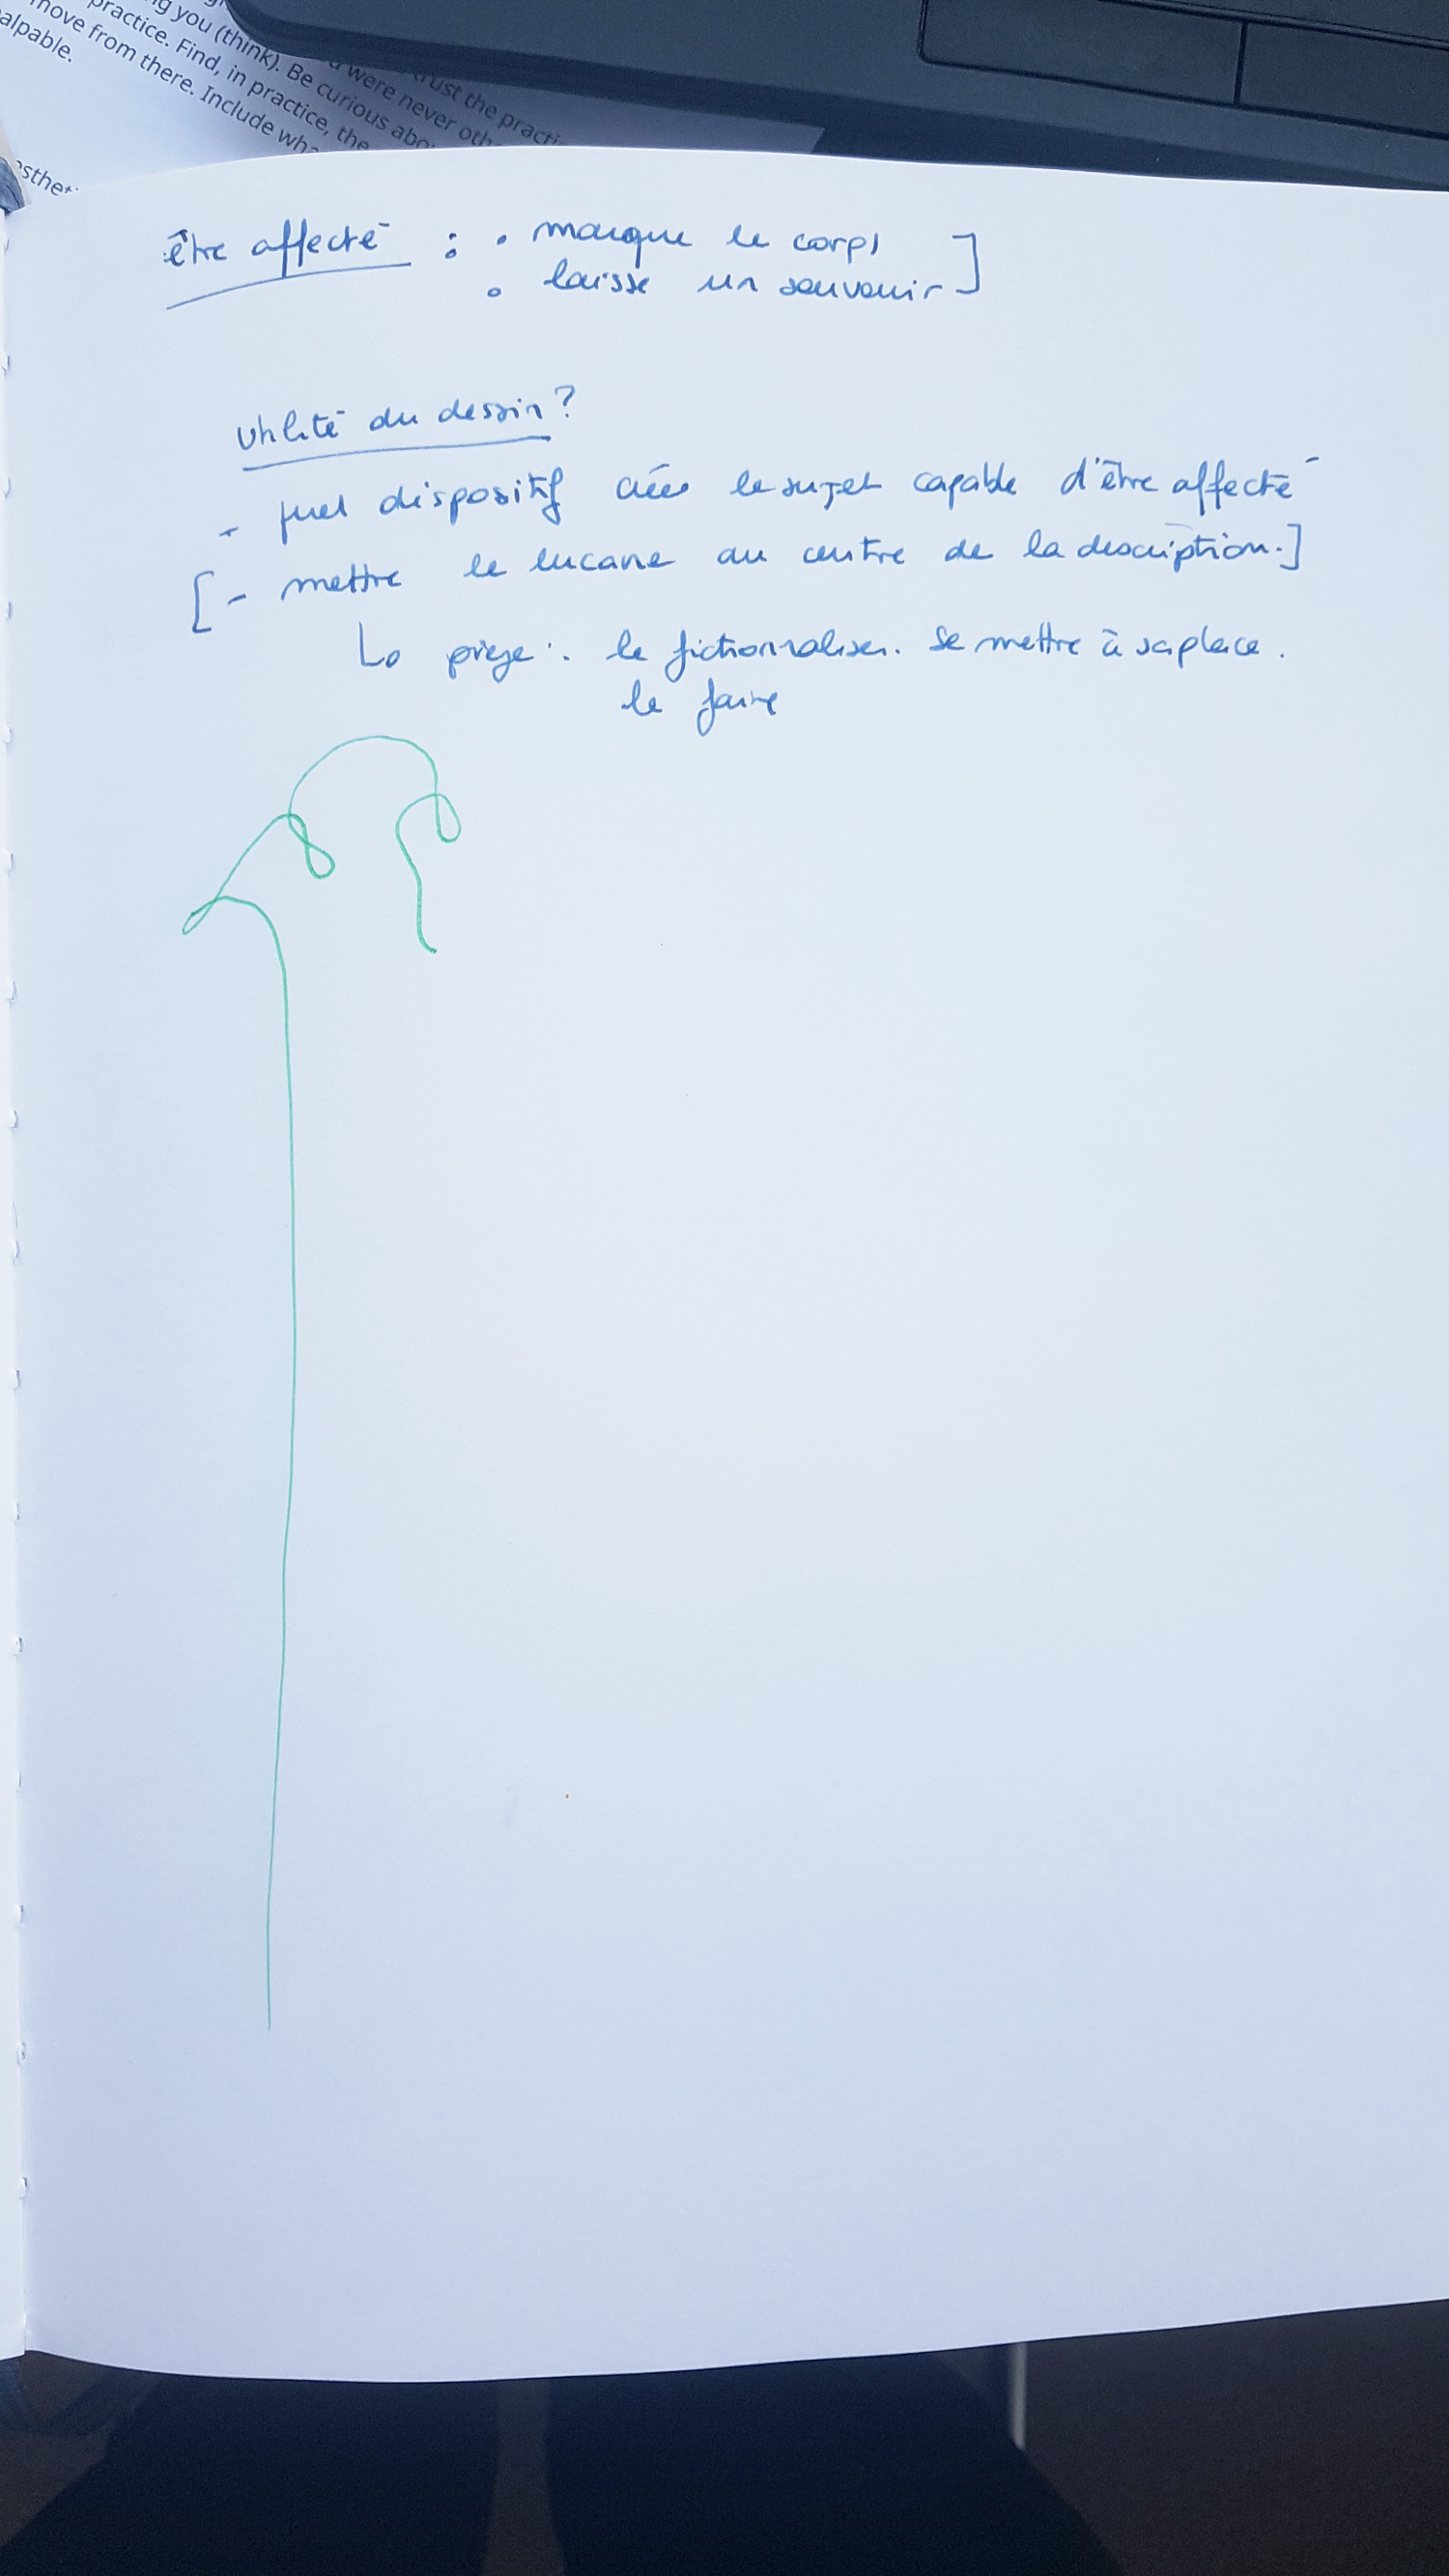 ng you (think). Be curious abo
practice. Find, in practice, the
move from there. Include wha
alpable.
were never oth
trust the practi
sthet
être affecté : • marque le corps
• laisse un souvenir ]
Utilité du dessin ?
- quel dispositif créer le sujet capable d'être affecté
[- mettre le lucane au centre de la description.]
piège : le fictionnaliser. Se mettre à sa place.
le faire